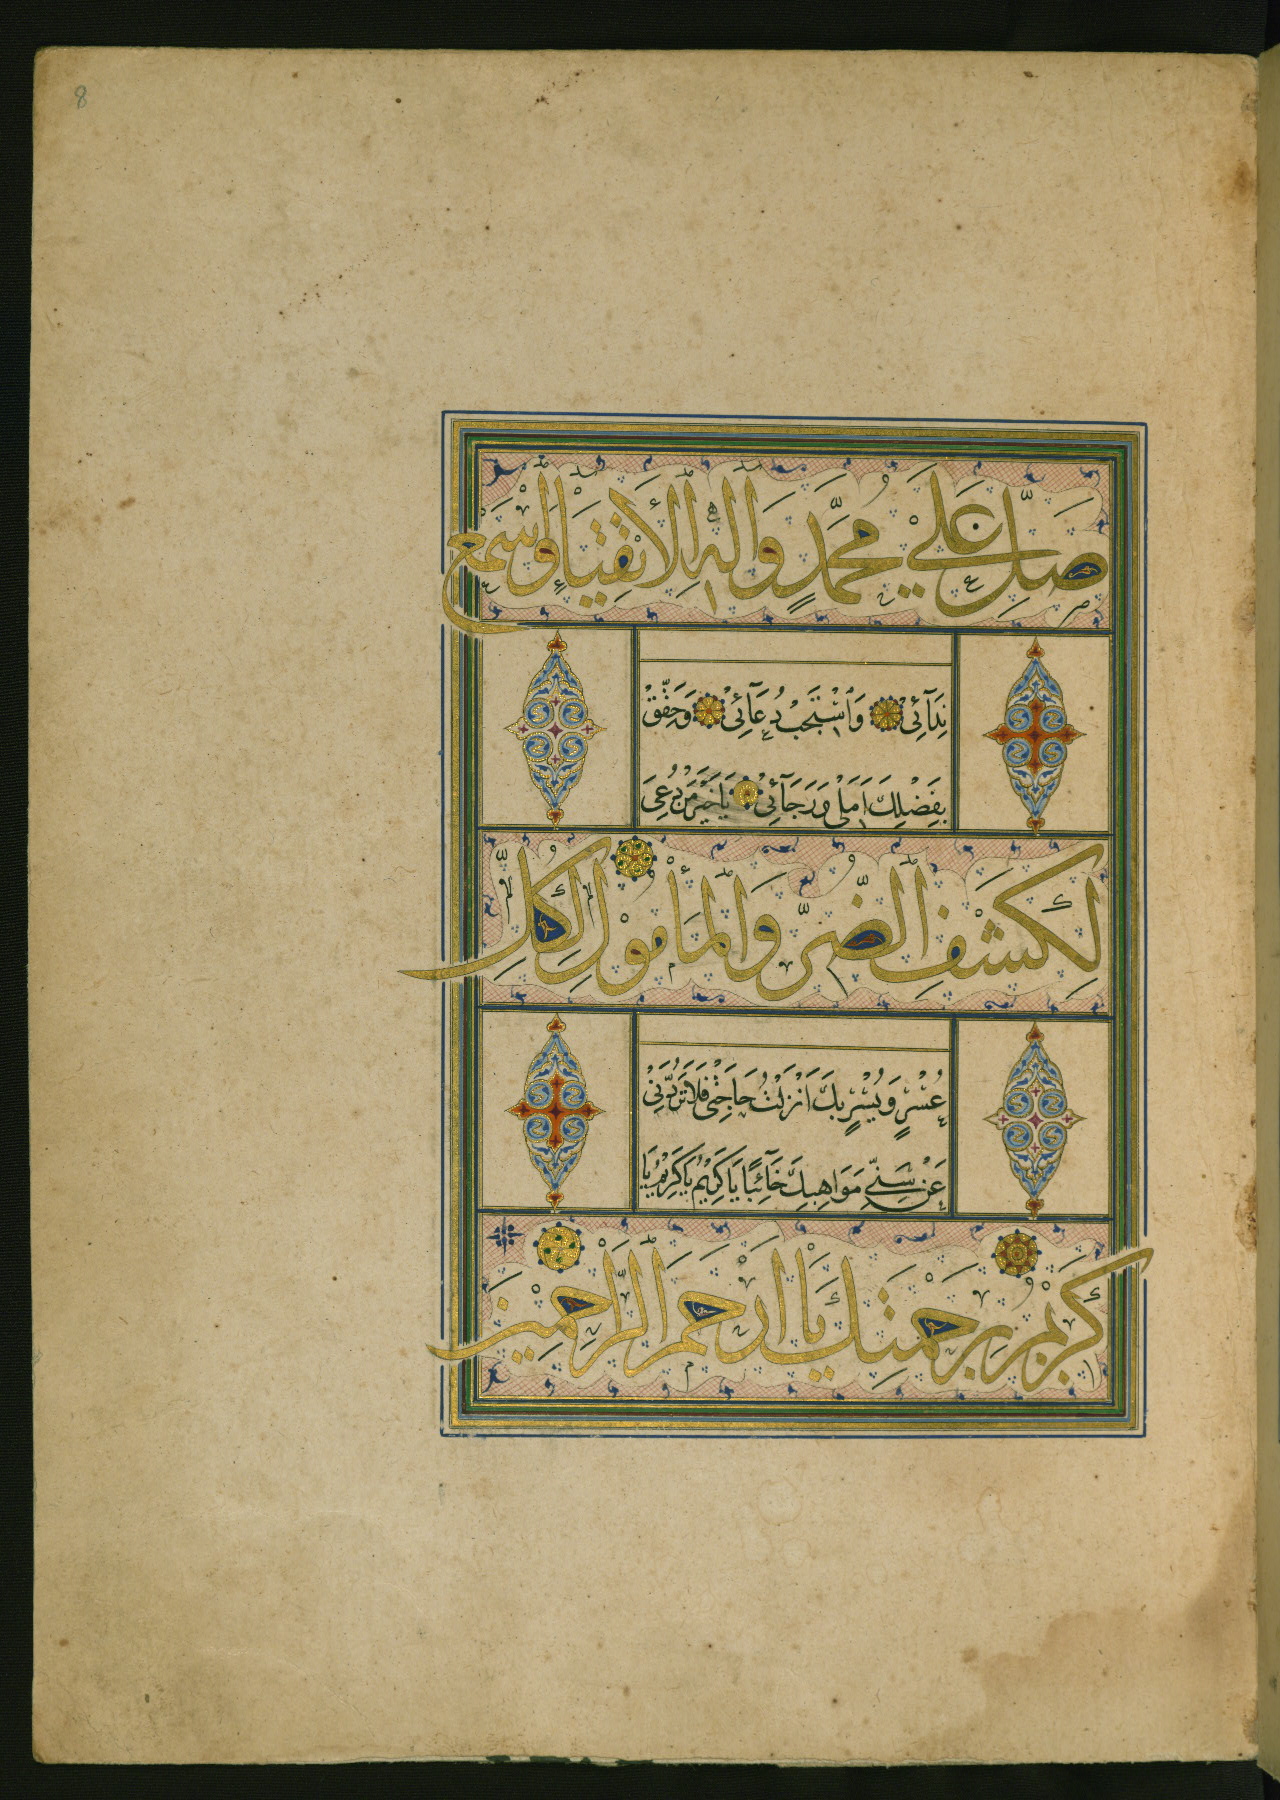 8
صَلِّ عَلٰى مُحَمَّدٍ وَاٰلِهِ الْاَتْقِيَاءِ وَاسْمَعْ
نِدَآئِىْ وَاسْتَجِبْ دُعَآئِىْ وَحَقِّقْ
بِفَضْلِكَ اَمَلِىْ وَرَجَآئِىْ يَا خَيْرَ مَنْ دُعِىَ
لِكَشْفِ الضُّرِّ وَالْمَأْمُوْلِ لِكُلِّ
عُسْرٍ وَيُسْرٍ بِكَ اَنْزَلْتُ حَاجَتِىْ فَلَا تَرُدَّنِىْ
عَنْ سَنِىِّ مَوَاهِبِكَ خَآئِبًا يَا كَرِيْمُ يَا كَرِيْمُ يَا
كَرِيْمُ بِرَحْمَتِكَ يَا اَرْحَمَ الرَّاحِمِيْنَ